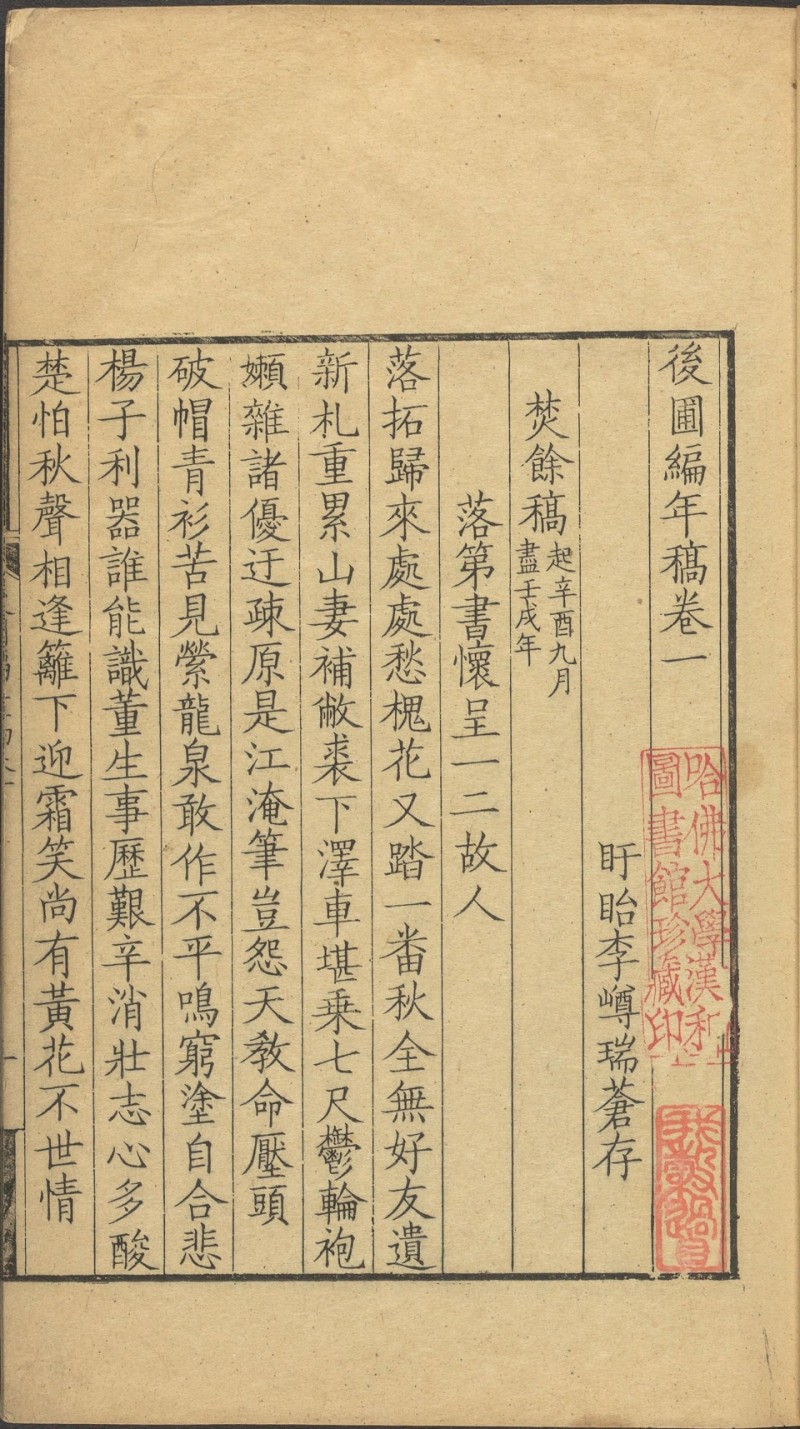 後圃編年稿卷一
盱眙李嶟瑞蒼存
焚餘稿起辛酉九月
盡壬戌年
落第書懷呈一二故人
落拓歸來處處愁槐花又踏一番秋全無好友遺
新札重累山妻補敝裘下澤車堪乘七尺鬱輪袍
嬾雜諸優迂疎原是江淹筆豈怨天敎命壓頭
破帽青衫苦見縈龍泉敢作不平鳴窮塗自合悲
楊子利器誰能識董生事歷艱辛消壯志心多酸
楚怕秋聲相逢籬下迎霜笑尚有黃花不世情
哈佛大學漢和
圖書館珍藏印